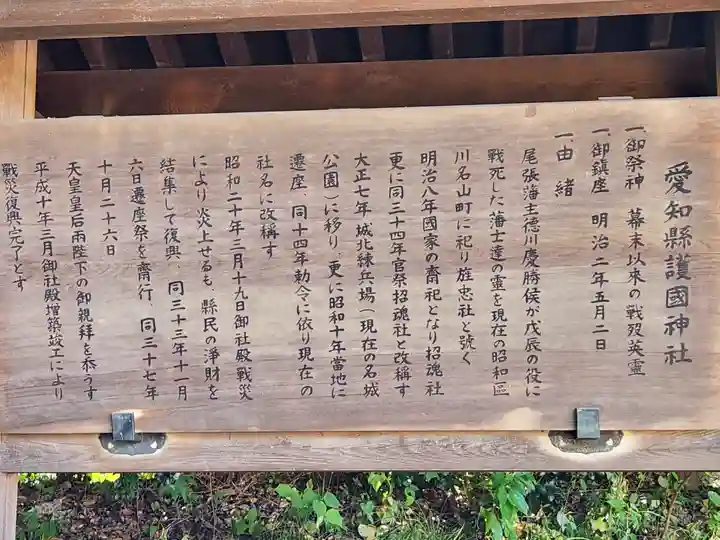 愛知縣護國神社
一、御祭神　幕末以来の戦歿英霊
一、御鎮座　明治二年五月二日
一、由緒
尾張藩主徳川慶勝侯が戊辰の役に
戦死した藩士達の霊を現在の昭和區
川名山町に祀り旌忠社と號く
明治八年國家の齋祀となり招魂社
更に同三十四年官祭招魂社と改稱す
大正七年城北練兵場（現在の名城
公園）に移り、更に昭和十年當地に
遷座、同十四年勅令に依り現在の
社名に改稱す
昭和二十年三月十九日御社殿戦災
により炎上せるも、縣民の浄財を
結集して復興、同三十三年十一月
六日遷座祭を齋行、同三十七年
十月二十六日
天皇皇后両陛下の御親拜を忝うす
平成十年三月御社殿増築竣工により
戦災復興完了とす